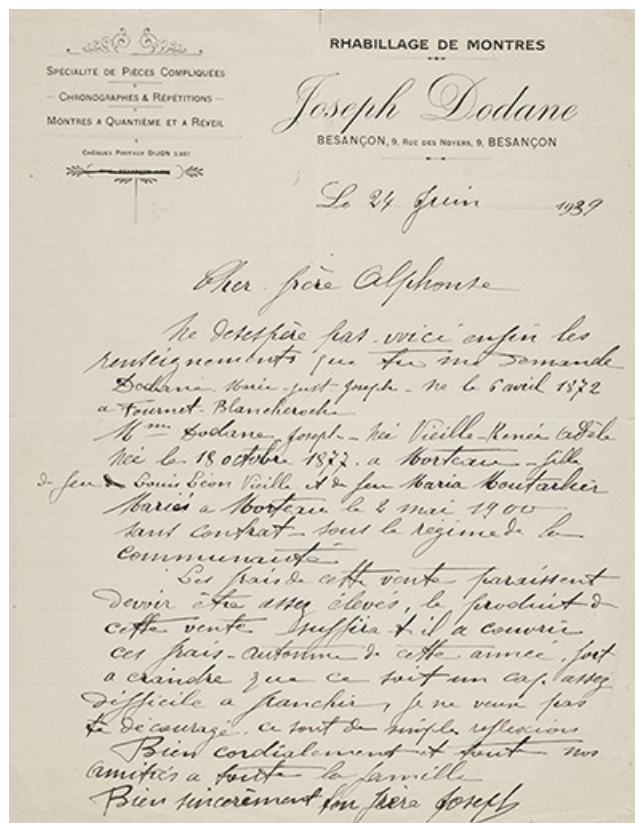 SPÉCIALITÉ DE PIÈCES COMPLIQUÉES
CHRONOGRAPHES & RÉPÉTITIONS
MONTRES A QUANTIÈME ET A RÉVEIL
CHÈQUES POSTAUX DIJON
RHABILLAGE DE MONTRES
Joseph Dodane
BESANÇON, 9, RUE DES NOYERS, 9, BESANÇON
Le 24 Juin 1939
Cher frère Alphonse
Ne desespère pas voici enfin les
renseignements que tu me demande
Dodane Marie-Just-Joseph - né le 6 avril 1872
a Fournet-Blancheroche
Mme Dodane Joseph - Née Vieille-Renée Adèle
Née le 18 octobre 1877 a Morteau - fille
de feu Louis Léon Vieille et de feu Maria Moutarlier
Mariés a Morteau le 2 mai 1900
sans contrat - sous le régime de la
communauté
Les frais de cette vente paraissent
devoir être assez élevés, le produit de
cette vente suffira t il a couvrir
ces frais - automne de cette année, fort
a craindre que ce soit un cap assez
difficile a franchir, je ne veux pas
te décourage, ce sont de simple reflexions
Bien cordialement et toute nos
amitiés a toute la famille
Bien sincèrement ton frère Joseph